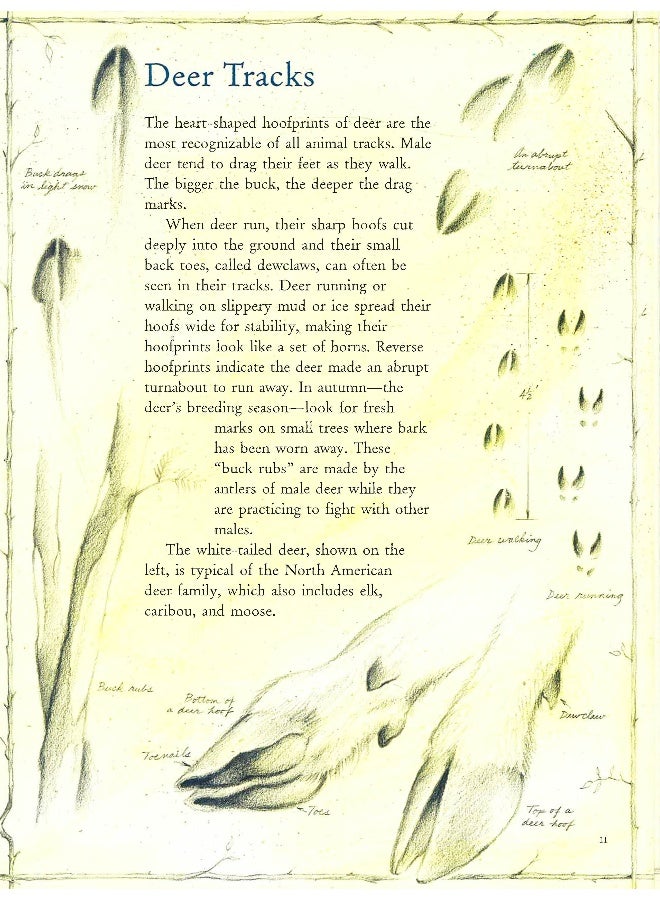 Deer Tracks
The heart-shaped hoofprints of deer are the
most recognizable of all animal tracks. Male
deer tend to drag their feet as they walk.
The bigger the buck, the deeper the drag
marks.
When deer run, their sharp hoofs cut
deeply into the ground and their small
back toes, called dewclaws, can often be
seen in their tracks. Deer running or
walking on slippery mud or ice spread their
hoofs wide for stability, making their
hoofprints look like a set of horns. Reverse
hoofprints indicate the deer made an abrupt
turnabout to run away. In autumn—the
deer's breeding season—look for fresh
marks on small trees where bark
has been worn away. These
"buck rubs" are made by the
antlers of male deer while they
are practicing to fight with other
males.
The white-tailed deer, shown on the
left, is typical of the North American
deer family, which also includes elk,
caribou, and moose.
Buck drags
in light snow
An abrupt
turnabout
4½'
Deer walking
Deer running
Buck rubs
Bottom of
a deer hoof
Toenails
Toes
Dewclaw
Top of a
deer hoof
11